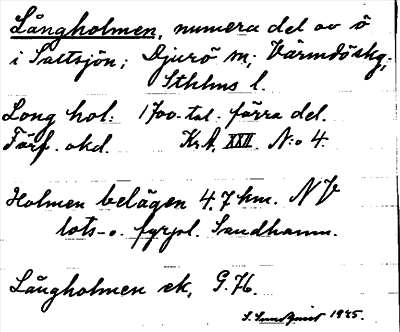 Långholmen, numera del av ö
i Saltsjön; Djurö sn; Värmdöskg;
Sthlms l.
Long hol: 1700-tal. förra del.
Förf. okd. Kr.A. XXII. N:o 4.
Holmen belägen 4,7 km. NV
lots- o. fyrpl. Sandhamn.
Långholmen ek, G.K.
S. Sundquist 1925.